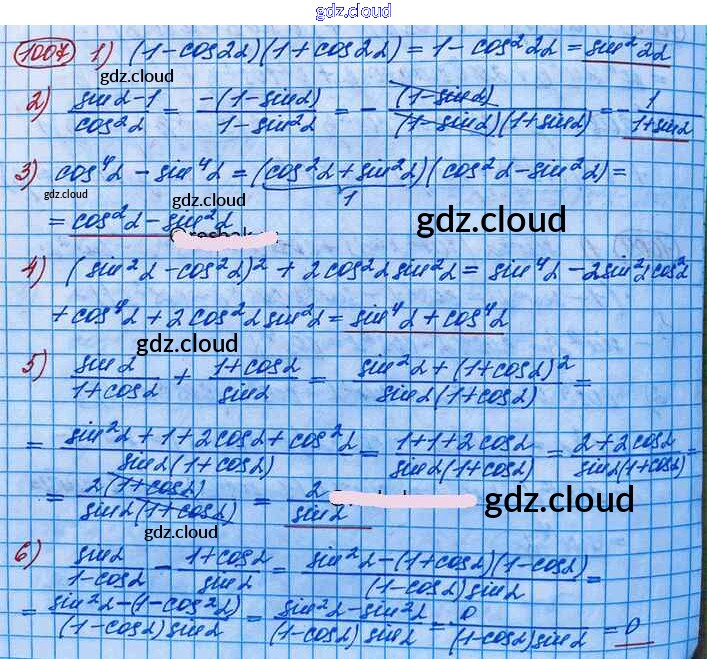 gdz.cloud
1007 1) (1-cos2α)(1+cos2α) = 1-cos²2α = sin²2α
gdz.cloud
2) (sinα-1)/(cos²α) = (-(1-sinα))/(1-sin²α) = -(1-sinα)/((1-sinα)(1+sinα)) = -1/(1+sinα)
3) cos⁴α - sin⁴α = (cos²α + sin²α)(cos²α - sin²α) =
1
gdz.cloud gdz.cloud gdz.cloud
= cos²α - sin²α
4) (sin²α - cos²α)² + 2cos²α sin²α = sin⁴α - 2sin²α cos²α
+ cos⁴α + 2cos²α sin²α = sin⁴α + cos⁴α
gdz.cloud
5) sinα/(1+cosα) + (1+cosα)/sinα = (sin²α + (1+cosα)²)/(sinα(1+cosα)) =
= (sin²α + 1 + 2cosα + cos²α)/(sinα(1+cosα)) = (1+1+2cosα)/(sinα(1+cosα)) = (2+2cosα)/(sinα(1+cosα)) =
= 2(1+cosα)/(sinα(1+cosα)) = 2/sinα
gdz.cloud
gdz.cloud
6) sinα/(1-cosα) - (1+cosα)/sinα = (sin²α-(1+cosα)(1-cosα))/((1-cosα)sinα) =
= (sin²α-(1-cos²α))/((1-cosα)sinα) = (sin²α-sin²α)/((1-cosα)sinα) = 0/((1-cosα)sinα) = 0